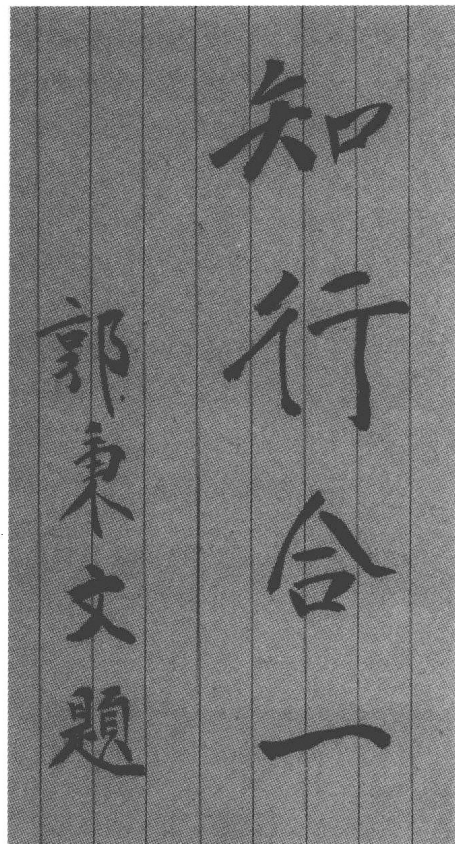 知行合一
郭秉文題